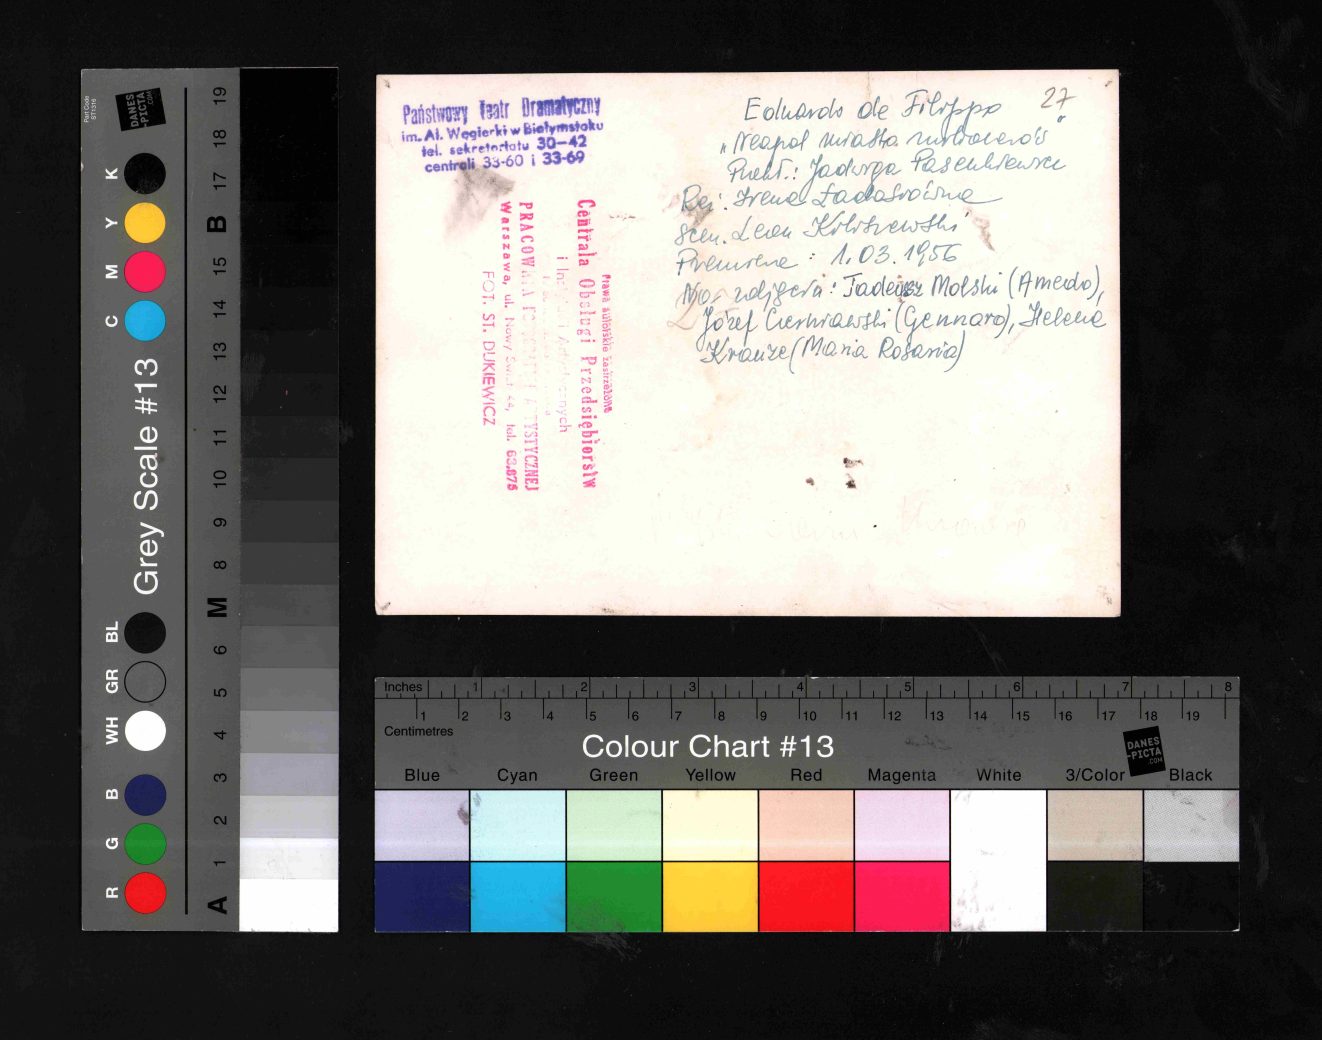 Państwowy Teatr Dramatyczny
im. Al. Węgierki w Białymstoku
tel. sekretariatu 30-42
centrali 33-60 i 33-69
27
Eduardo de Filippo
„Neapol miasto milionerów"
Przekł.: Jadwiga Pasenkiewicz
Reż. Irena Ładosiówna
scen. Leon Kołiszewski
Premiera : 1.03.1956
Na zdjęciu: Tadeusz Molski (Amedo),
Józef Czerniawski (Gennaro), Helena
Krauze (Maria Rosaria)
Prawa autorskie zastrzeżone
Centrala Obsługi Przedsiębiorstw
i Instytucji Artystycznych
PRACOWNIA FOTOGRAFII ARTYSTYCZNEJ
Warszawa, ul. Nowy Świat 44, tel. 63.875
FOT. ST. DUKIEWICZ
Part Code
ST1316
DANES
-PICTA
.COM
Grey Scale #13
R G B WH GR BL C M Y K
A 1 2 3 4 5 6 M 8 9 10 11 12 13 14 15 B 17 18 19
Inches 1 2 3 4 5 6 7 8
1 2 3 4 5 6 7 8 9 10 11 12 13 14 15 16 17 18 19
Centimetres
Colour Chart #13
DANES
-PICTA
.COM
Blue Cyan Green Yellow Red Magenta White 3/Color Black